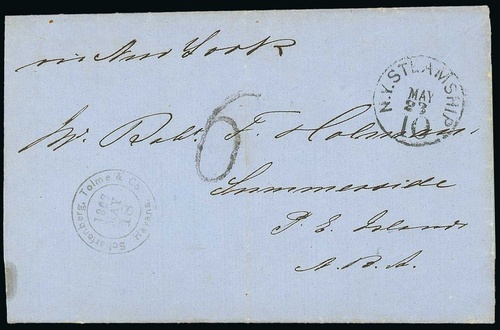 via New York
N.Y. STEAMSHIP
MAY
23
10
6
Mr. Robt. F. Holman.
Summerside
P. E. Island
A.B.A.
Scharfenberg, Tolme & Co. Havana
MAY